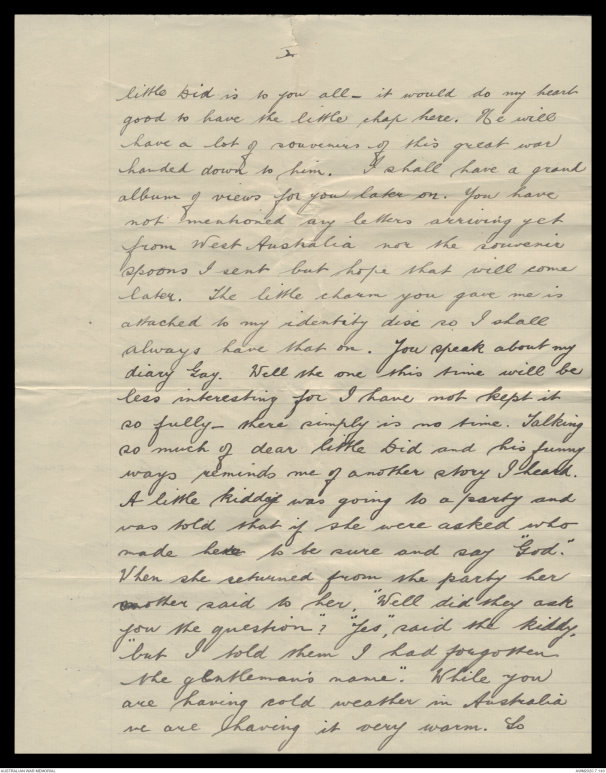 2
little Did is to you all - it would do my heart
good to have the little chap here. He will
have a lot of souvenirs of this great war
handed down to him. I shall have a grand
album of views for you later on. You have
not mentioned any letters arriving yet
from West Australia nor the souvenir
spoons I sent but hope that will come
later. The little charm you gave me is
attached to my identity disc so I shall
always have that on. You speak about my
diary Gay. Well the one this time will be
less interesting for I have not kept it
so fully - there simply is no time. Talking
so much of dear little Did and his funny
ways reminds me of another story I heard.
A little kiddy was going to a party and
was told that if she were asked who
made her to be sure and say "God."
When she returned from the party her
mother said to her, "Well did they ask
you the question"? "Yes", said the kiddy,
"but I told them I had forgotten
the glentleman's name". While you
are having cold weather in Australia
we are having it very warm. So
AUSTRALIAN WAR MEMORIAL